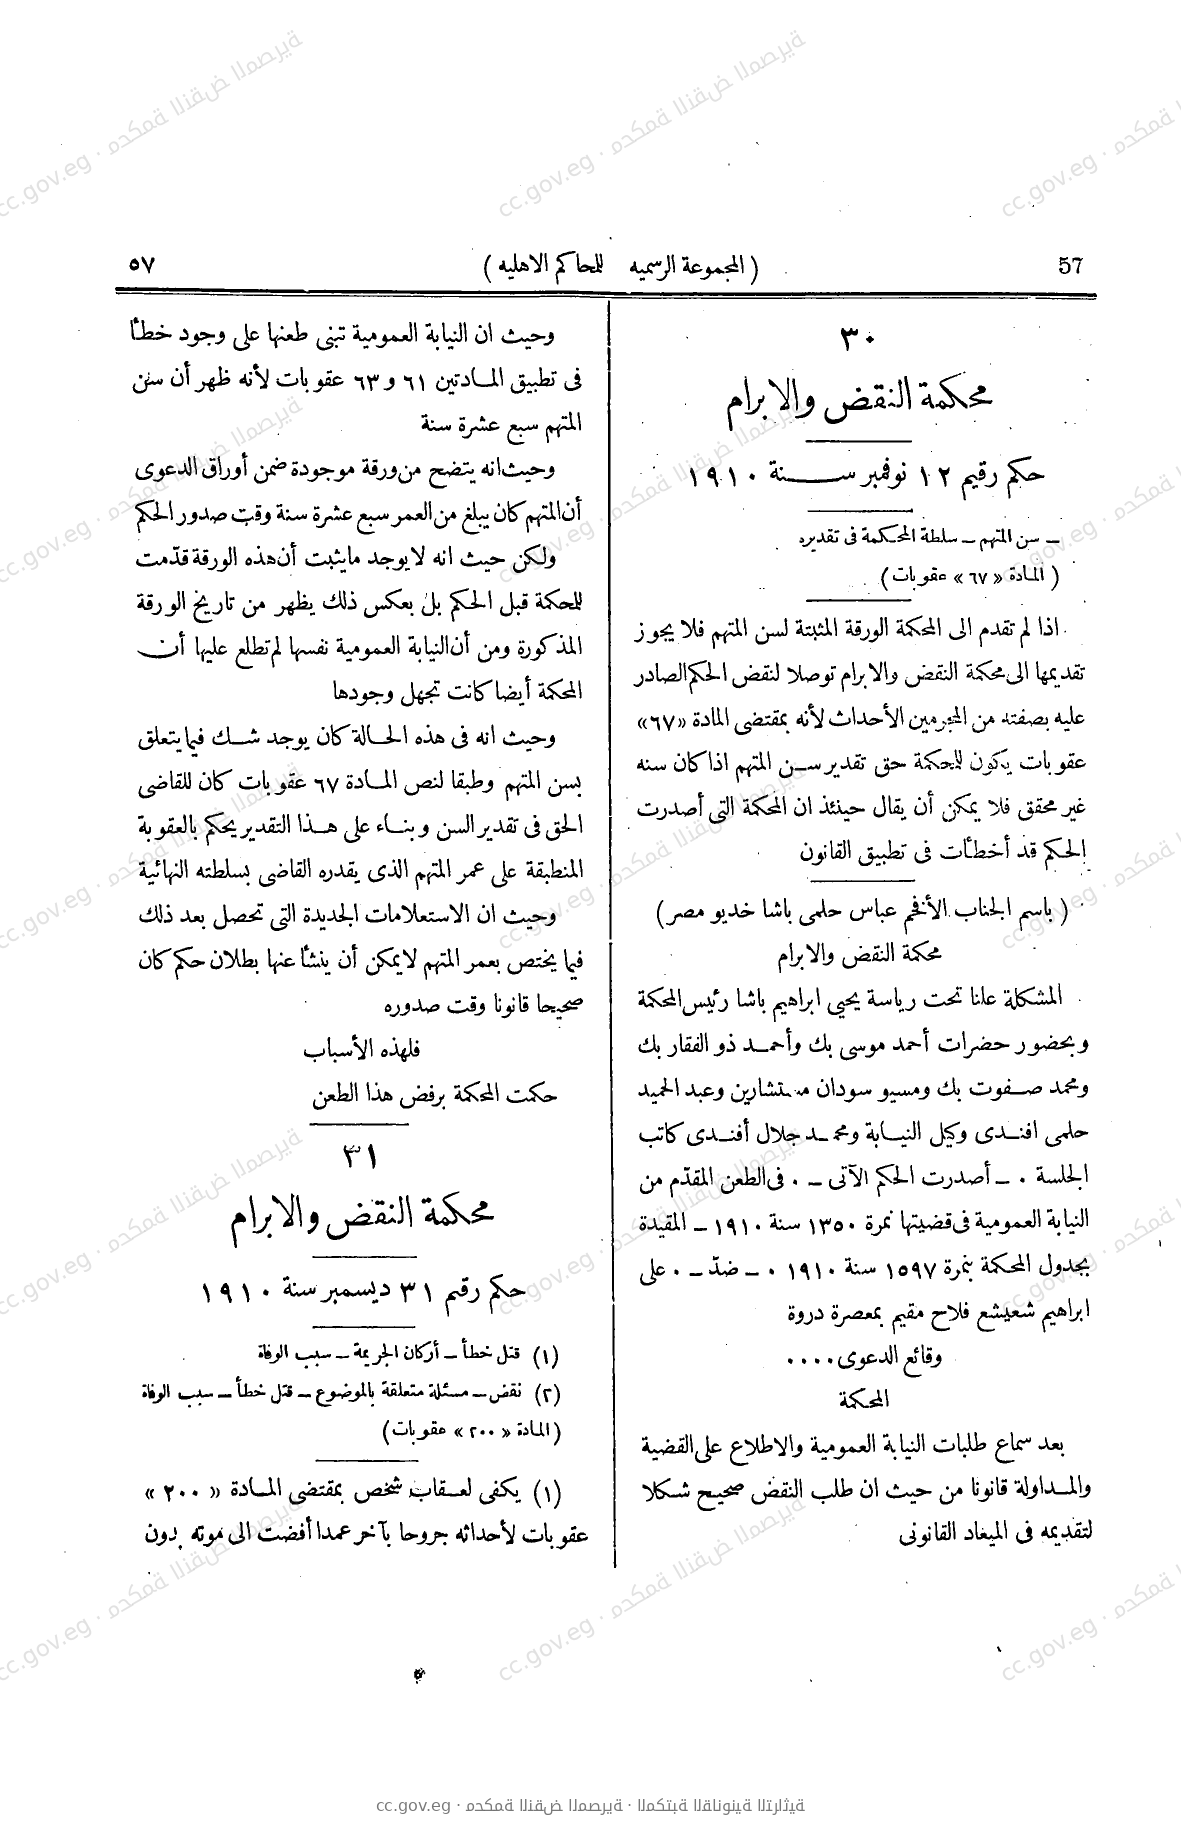 57 ( المجموعة الرسميه للمحاكم الاهليه ) ٥٧
٣٠
محكمة النقض والابرام
حكم رقيم ١٢ نوفمبر سنة ١٩١٠
ـ سن المتهم ـ سلطة المحكمة فى تقديره
( المادة « ٦٧ » عقوبات )
اذا لم تقدم الى المحكمة الورقة المثبتة لسن المتهم فلا يجوز
تقديمها الى محكمة النقض والابرام توصلا لنقض الحكم الصادر
عليه بصفته من المجرمين الأحداث لأنه بمقتضى المادة «٦٧»
عقوبات يكون للمحكمة حق تقدير سن المتهم اذا كان سنه
غير محقق فلا يمكن أن يقال حينئذ ان المحكمة التى أصدرت
الحكم قد أخطأت فى تطبيق القانون
( باسم الجناب الأفخم عباس حلمى باشا خديو مصر )
محكمة النقض والابرام
المشكلة علنا تحت رياسة يحيى ابراهيم باشا رئيس المحكمة
وبحضور حضرات أحمد موسى بك وأحمد ذو الفقار بك
ومحمد صفوت بك ومسيو سودان مستشارين وعبد الحميد
حلمى افندى وكيل النيابة ومحمد جلال أفندى كاتب
الجلسة ٠ ـ أصدرت الحكم الآتى ـ ٠ فى الطعن المقدّم من
النيابة العمومية فى قضيتها نمرة ١٣٥٠ سنة ١٩١٠ ـ المقيدة
بجدول المحكمة بنمرة ١٥٩٧ سنة ١٩١٠ ٠ ـ ضدّ ـ ٠ على
ابراهيم شعيشع فلاح مقيم بمعصرة دروة
وقائع الدعوى ٠٠٠٠
المحكمة
بعد سماع طلبات النيابة العمومية والاطلاع على القضية
والمداولة قانونا من حيث ان طلب النقض صحيح شكلا
لتقديمه فى الميعاد القانونى
وحيث ان النيابة العمومية تبنى طعنها على وجود خطأ
فى تطبيق المادتين ٦١ و ٦٣ عقوبات لأنه ظهر أن سن
المتهم سبع عشرة سنة
وحيث انه يتضح من ورقة موجودة ضمن أوراق الدعوى
أن المتهم كان يبلغ من العمر سبع عشرة سنة وقت صدور الحكم
ولكن حيث انه لا يوجد ما يثبت أن هذه الورقة قدّمت
للمحكمة قبل الحكم بل بعكس ذلك يظهر من تاريخ الورقة
المذكورة ومن أن النيابة العمومية نفسها لم تطلع عليها أن
المحكمة أيضا كانت تجهل وجودها
وحيث انه فى هذه الحالة كان يوجد شك فيما يتعلق
بسن المتهم وطبقا لنص المادة ٦٧ عقوبات كان للقاضى
الحق فى تقدير السن وبناء على هذا التقدير يحكم بالعقوبة
المنطبقة على عمر المتهم الذى يقدره القاضى بسلطته النهائية
وحيث ان الاستعلامات الجديدة التى تحصل بعد ذلك
فيما يختص بعمر المتهم لا يمكن أن ينشأ عنها بطلان حكم كان
صحيحا قانونا وقت صدوره
فلهذه الأسباب
حكمت المحكمة برفض هذا الطعن
٣١
محكمة النقض والابرام
حكم رقيم ٣١ ديسمبر سنة ١٩١٠
(١) قتل خطأ ـ أركان الجريمة ـ سبب الوفاة
(٢) نقض ـ مسئلة متعلقة بالموضوع ـ قتل خطأ ـ سبب الوفاة
(المادة « ٢٠٠ » عقوبات)
(١) يكفى لعقاب شخص بمقتضى المادة « ٢٠٠ »
عقوبات لأحداثه جروحا بآخر عمدا أفضت الى موته بدون
cc.gov.eg · محكمة النقض المصرية · المكتبة القانونية التراثية